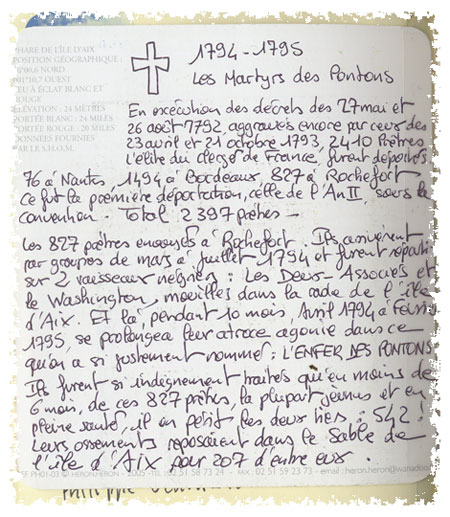 1794 - 1795
Les Martyrs des Pontons
PHARE DE L'ÎLE D'AIX
POSITION GÉOGRAPHIQUE :
NORD
OUEST
FEU À ÉCLAT BLANC ET
ROUGE
ÉLÉVATION : 24 MÈTRES
PORTÉE BLANC : 24 MILES
PORTÉE ROUGE : 20 MILES
DONNÉES FOURNIES
PAR LE S.H.O.M.
En exécution des décrets des 27 mai et
26 août 1792, aggravés encore par ceux des
23 avril et 21 octobre 1793, 2410 Prêtres
l'élite du clergé de France, furent déportés
76 à Nantes, 1494 à Bordeaux, 827 à Rochefort
Ce fut la première déportation, celle de l'An II, sous la
Convention. Total 2397 prêtres -
Les 827 prêtres envoyés à Rochefort. Ils arrivèrent
par groupes de mars à juillet 1794 et furent répartis
sur 2 vaisseaux négriers : Les Deux-Associés et
le Washington, mouillés dans la rade de l'île
d'Aix. Et là, pendant 10 mois, Avril 1794 à Février
1795, se prolongea leur atroce agonie dans ce
qu'on a si justement nommer : L'ENFER DES PONTONS
Ils furent si indignement traités qu'en moins de
6 mois, de ces 827 prêtres, la plupart jeunes et en
pleine santé, il en périt les deux tiers : 542 !
Leurs ossements reposaient dans le sable de
l'île d'Aix pour 207 d'entre eux.
PH01-03 © HERON.HERON - 2005 - TEL : 02 51 58 73 24 - FAX : 02 51 59 23 73 - email : heron.heron@wanadoo